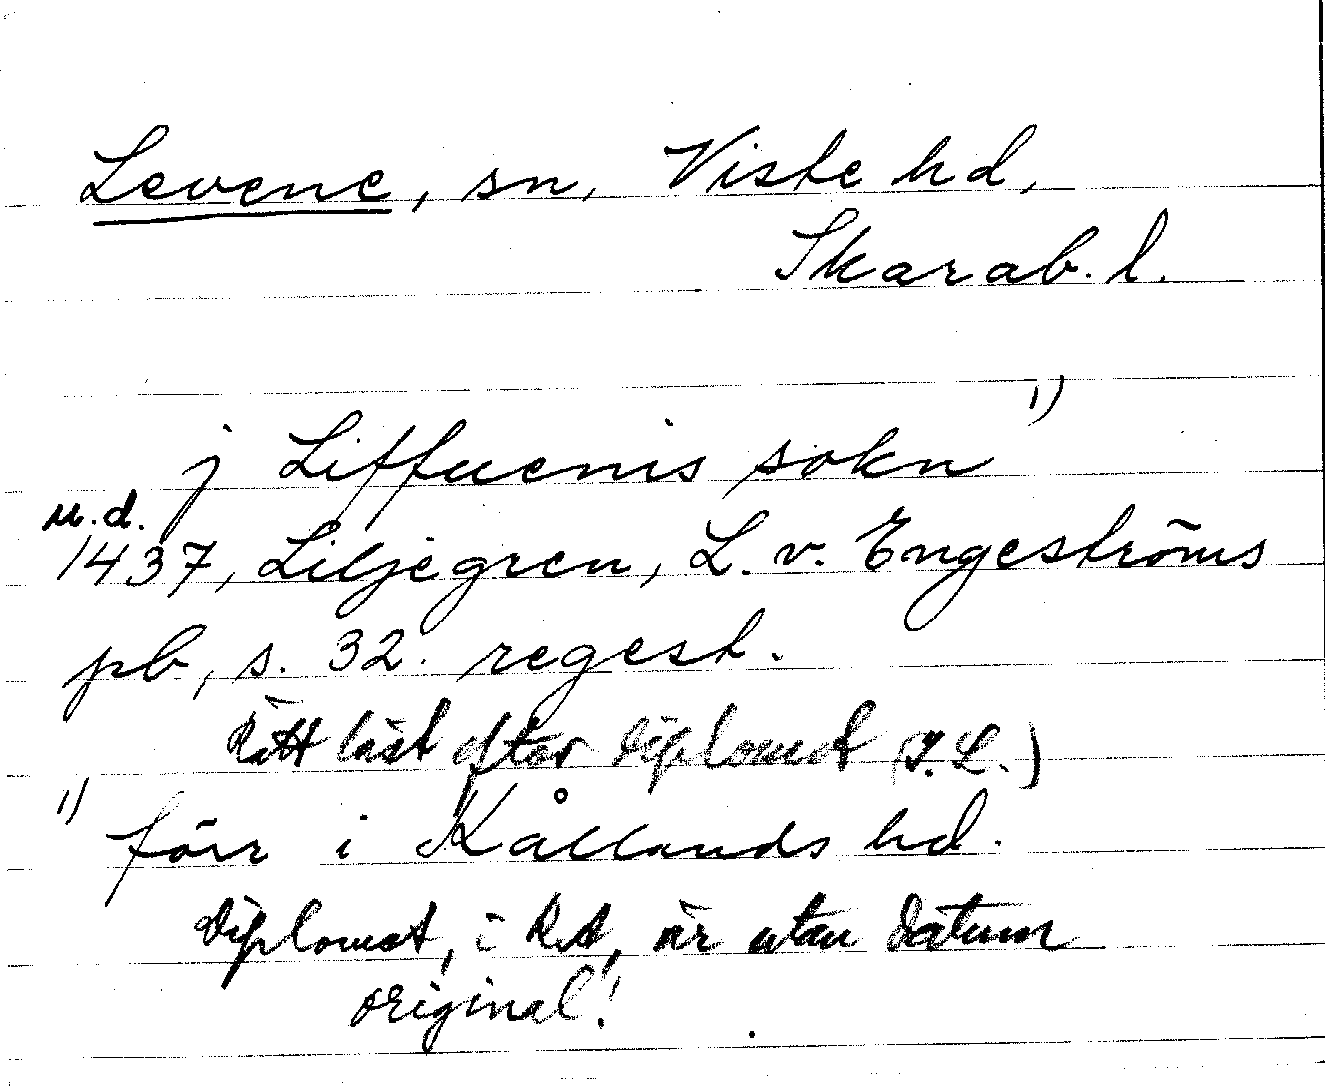 Levene, sn, Viste hd,
Skarab. l.
j Liffuenis sokn 1)
u.d.
1437, Liljegren, L. v. Engeströms
pb, s. 32. regest.
Rätt läst efter diplomet (I.L.)
1) förr i Kållands hd.
Diplomet, i RA, är utan datum
original!